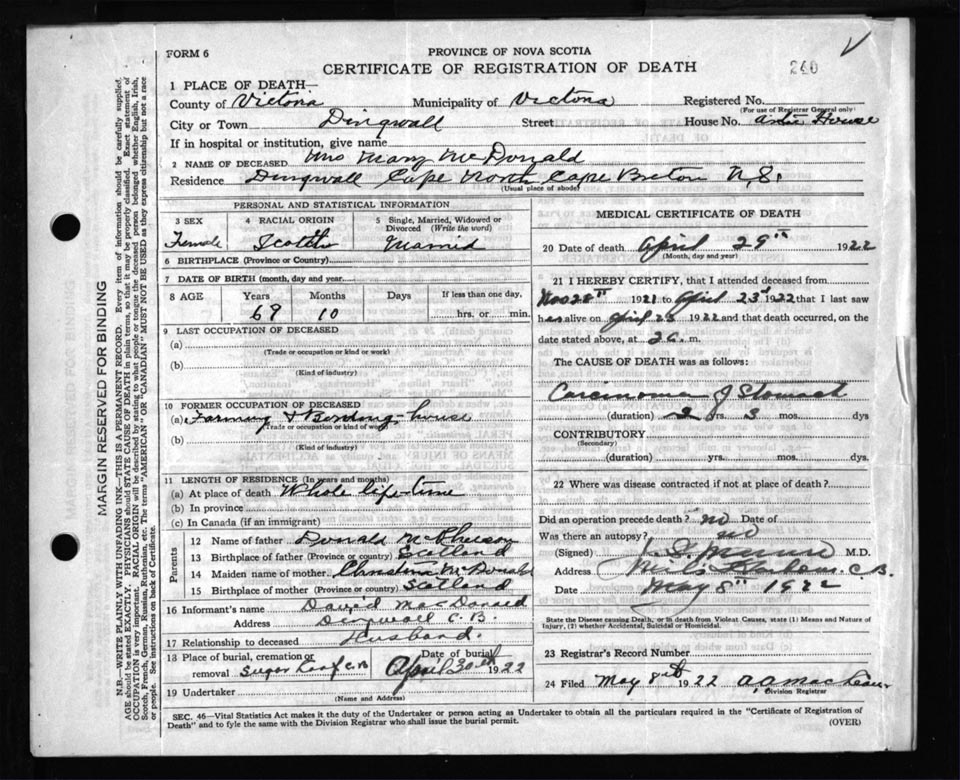 FORM 6
PROVINCE OF NOVA SCOTIA
CERTIFICATE OF REGISTRATION OF DEATH
240
1 PLACE OF DEATH
County of Victoria Municipality of Victoria Registered No.
(For use of Registrar General only)
City or Town Dingwall Street House No. House
If in hospital or institution, give name
2 NAME OF DECEASED Mrs Mary McDonald
Residence Dingwall Cape North Cape Breton N.S.
(Usual place of abode)
PERSONAL AND STATISTICAL INFORMATION
3 SEX
Female
4 RACIAL ORIGIN
Scotch
5 Single, Married, Widowed or Divorced (Write the word)
Married
6 BIRTHPLACE (Province or Country)
7 DATE OF BIRTH (month, day and year)
8 AGE Years Months Days If less than one day,
69 10 hrs. or min.
9 LAST OCCUPATION OF DECEASED
(a)
(Trade or occupation or kind or work)
(b)
(Kind of industry)
10 FORMER OCCUPATION OF DECEASED
(a) Farming & Boarding-house
(Trade or occupation or kind of work)
(b)
(Kind of industry)
11 LENGTH OF RESIDENCE (In years and months)
(a) At place of death Whole life-time
(b) In province
(c) In Canada (if an immigrant)
Parents
12 Name of father Donald McPherson
13 Birthplace of father (Province or country) Scotland
14 Maiden name of mother Christena McDonald
15 Birthplace of mother (Province or country) Scotland
16 Informant's name David MacDonald
Address Dingwall C.B.
17 Relationship to deceased Husband.
18 Place of burial, cremation or removal Sugar Loaf C.B.
Date of burial April 30th 1922
19 Undertaker
(Name and Address)
MEDICAL CERTIFICATE OF DEATH
20 Date of death April 29th 1922
(Month, day and year)
21 I HEREBY CERTIFY, that I attended deceased from
Nov 28th 1921 to April 23d 1922 that I last saw
her alive on April 23 1922 and that death occurred, on the
date stated above, at 2 a. m.
The CAUSE OF DEATH was as follows:
Carcinoma of Stomach
(duration) 2 yrs. 3 mos. dys
CONTRIBUTORY
(Secondary)
(duration) yrs. mos. dys.
22 Where was disease contracted if not at place of death?
Did an operation precede death? no Date of
Was there an autopsy? no
(Signed) M.D.
Address C.B.
Date May 8th 1922
State the Disease causing Death, or in death from Violent Causes, state (1) Means and Nature of
Injury, (2) whether Accidental, Suicidal or Homicidal.
23 Registrar's Record Number
24 Filed May 8th 1922 A A MacLean
Division Registrar
SEC. 46—Vital Statistics Act makes it the duty of the Undertaker or person acting as Undertaker to obtain all the particulars required in the "Certificate of Registration of
Death" and to fyle the same with the Division Registrar who shall issue the burial permit.
(OVER)
MARGIN RESERVED FOR BINDING
N.B.—WRITE PLAINLY WITH UNFADING INK—THIS IS A PERMANENT RECORD. Every item of information should be carefully supplied.
AGE should be stated EXACTLY. PHYSICIANS should STATE CAUSE OF DEATH in plain terms, so that it may be properly classified. Exact statement of
OCCUPATION is very important. RACIAL ORIGIN will be described by stating to what people or tongue the deceased person belonged whether English, Irish,
Scotch, French, German, Russian, Ruthenian, etc. The terms "AMERICAN" or "CANADIAN" MUST NOT BE USED as they express citizenship but not a race
or people. See instructions on back of Certificate.